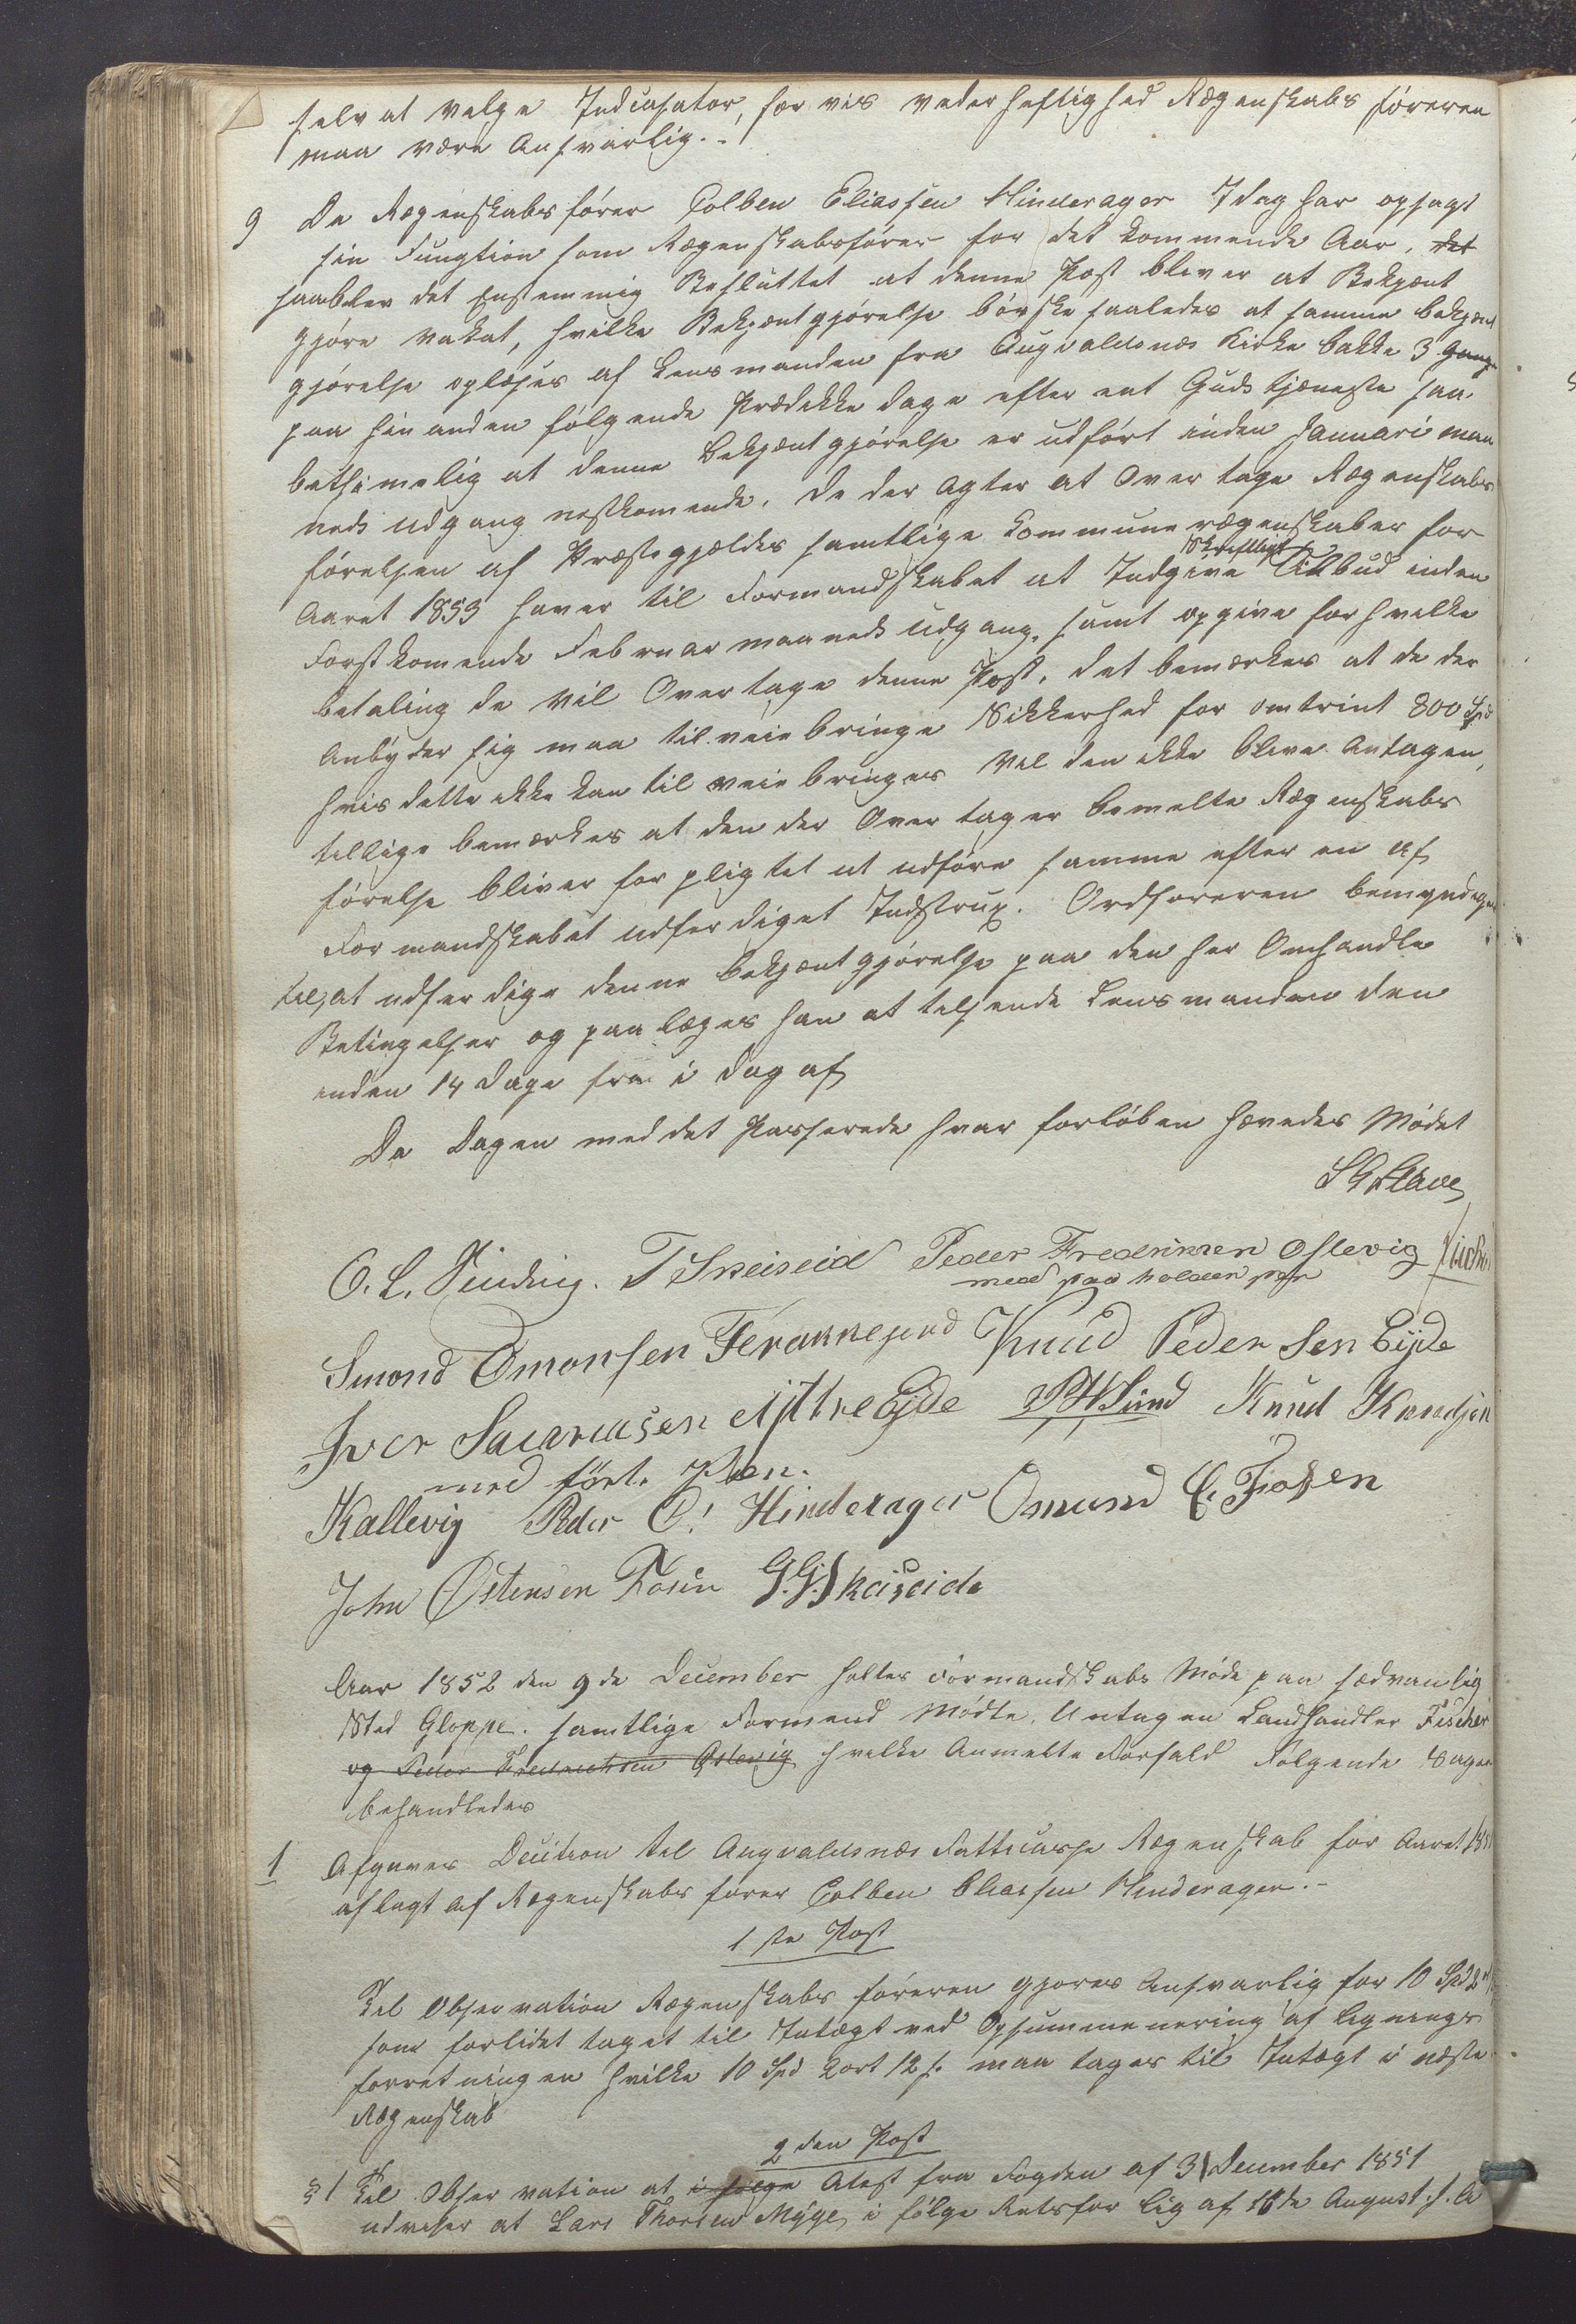 selv at velge Indcasator, for vis vederheftighed Regenskabs føreren
maa være Ansvarlig. -
9 Da Regenskabsfører Colben Eliassen Hinderager Idag har opsagt
sin Fungtion som Regenskabsfører for det kommende Aar, det
saa blev det Enstemmig Besluttet at denne Post bliver at Bekjent
gjøre vakat, hvilke Bekjentgjørelse bør ske saaledes at samme bekjent
gjørelse oplæses af Lensmanden fra Augvaldsnæs Kirke bakke 3 Gange
paa hin anden følgende Prædikke dage efter ent Gudstjeneste saa
bethimelig at denne Bekjentgjørelse er udført inden Januari maa
neds udgang nestkomende. De der Agter at Over tage Regenskabs
førelsen af Præstegjeldes samtlige Kommune regenskaber for
Aaret 1853 haver til Formandskabet at Indgive Skriftligt Tilbud inden
Forstkomende Februar maaneds udgang, samt opgive for hvilke
betaling de vil Overtage denne Post, det bemærkes at de der
Anbyder sig maa tilveiebringe Sikkerhed for omtrint 800 Spd
hvis dette ikke kan til veie bringes vil den ikke blive Antagen,
tillige bemærkes at den der Over tager bemelte Regenskabs
førelse bliver forpligtet at udføre samme efter en af
Formandskabet udferdiget Instrux. Ordføreren bemyndiges
til, at udferdige denne bekjentgjørelse paa den her Omhandle
Betingelser og paalæges han at tilsende Lensmanden den
inden 14 Dage fra i dag af
Da Dagen med det Passerede hvar forløben hævedes Mødet
O. L. Sinding. T Skeiseid Peder Fredriksen Oslevig
med paa holden pen
Smond Omonsen Ferkingstad Knud Peder Sen Eijde
Iver Saamusen Ytre Eide PHSund Knud Knudsen
med ført. Pen.
Kallevig Peder C. Hinderager Omund E. Fosen
John Østensen Fosen G.G. Skeiseide
Aar 1852 den 9de December holtes Formandskabs Møde paa sædvanlig
Sted Gloppe. samtlige Formend Mødte, Untagen Landhandler Fischer
og Peder Fredrichsen Oslevig hvilke Anmelte Forfald Følgende Sager
behandledes
1 Afgaves Decition til Augvaldsnæs Fatticasse Regenskab for Aaret 185
aflagt af Regenskabs fører Colben Eliassen Hinderager. -
1ste Post
Til Observation Regenskabs føreren gjøres Ansvarlig for 10 Spd 2
som forlidet taget til Intægt ved Opsummenering af ligning
forretningen hvilke 10 Spd 2 ort 12 s. maa tages til Intægt i næste
Regenskab
2den Post
§1 Til Observation at i følge Atest fra Fogden af 31 December 1851
udviser at Lars Thorsen Myge, i følge Retsforlig af 16de August s. A